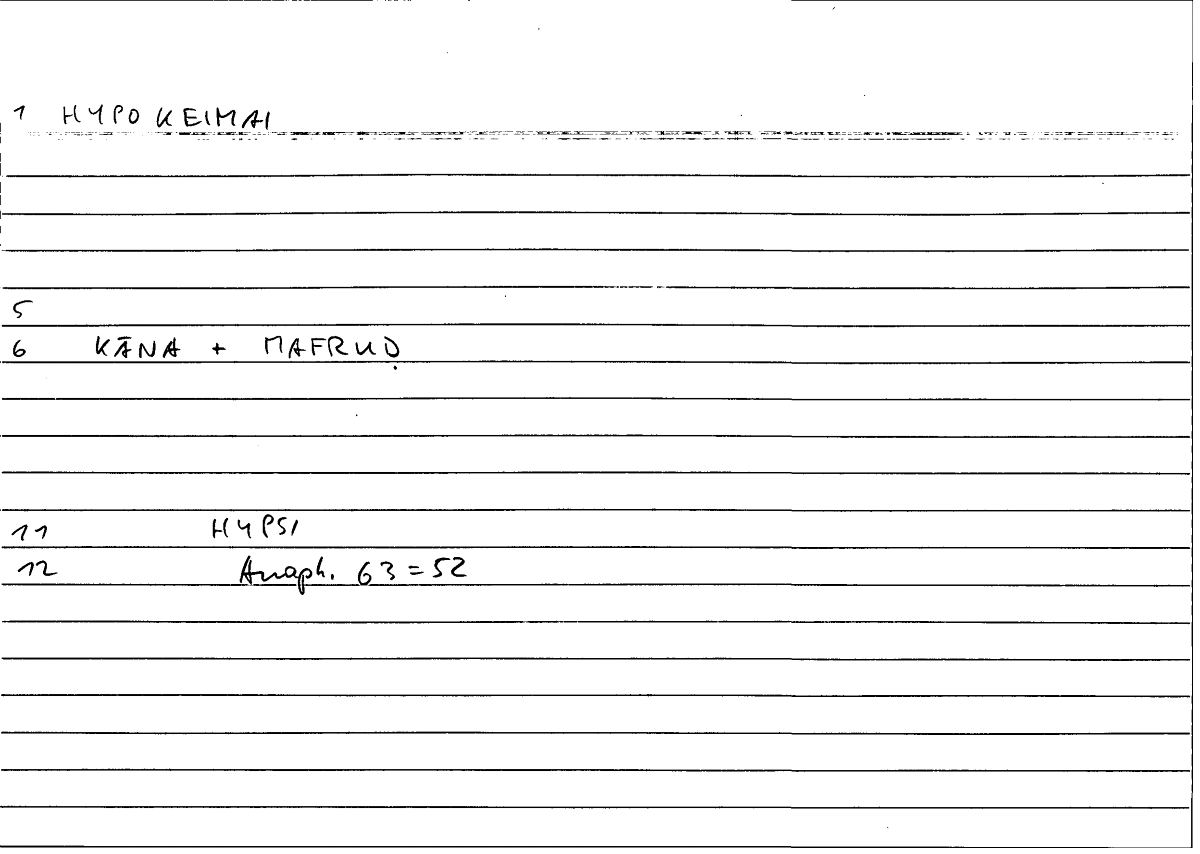 1 HYPOKEIMAI
5
6 KĀNA + MAFRUḌ
11 HYPSI
12 Anaph. 63 = 52